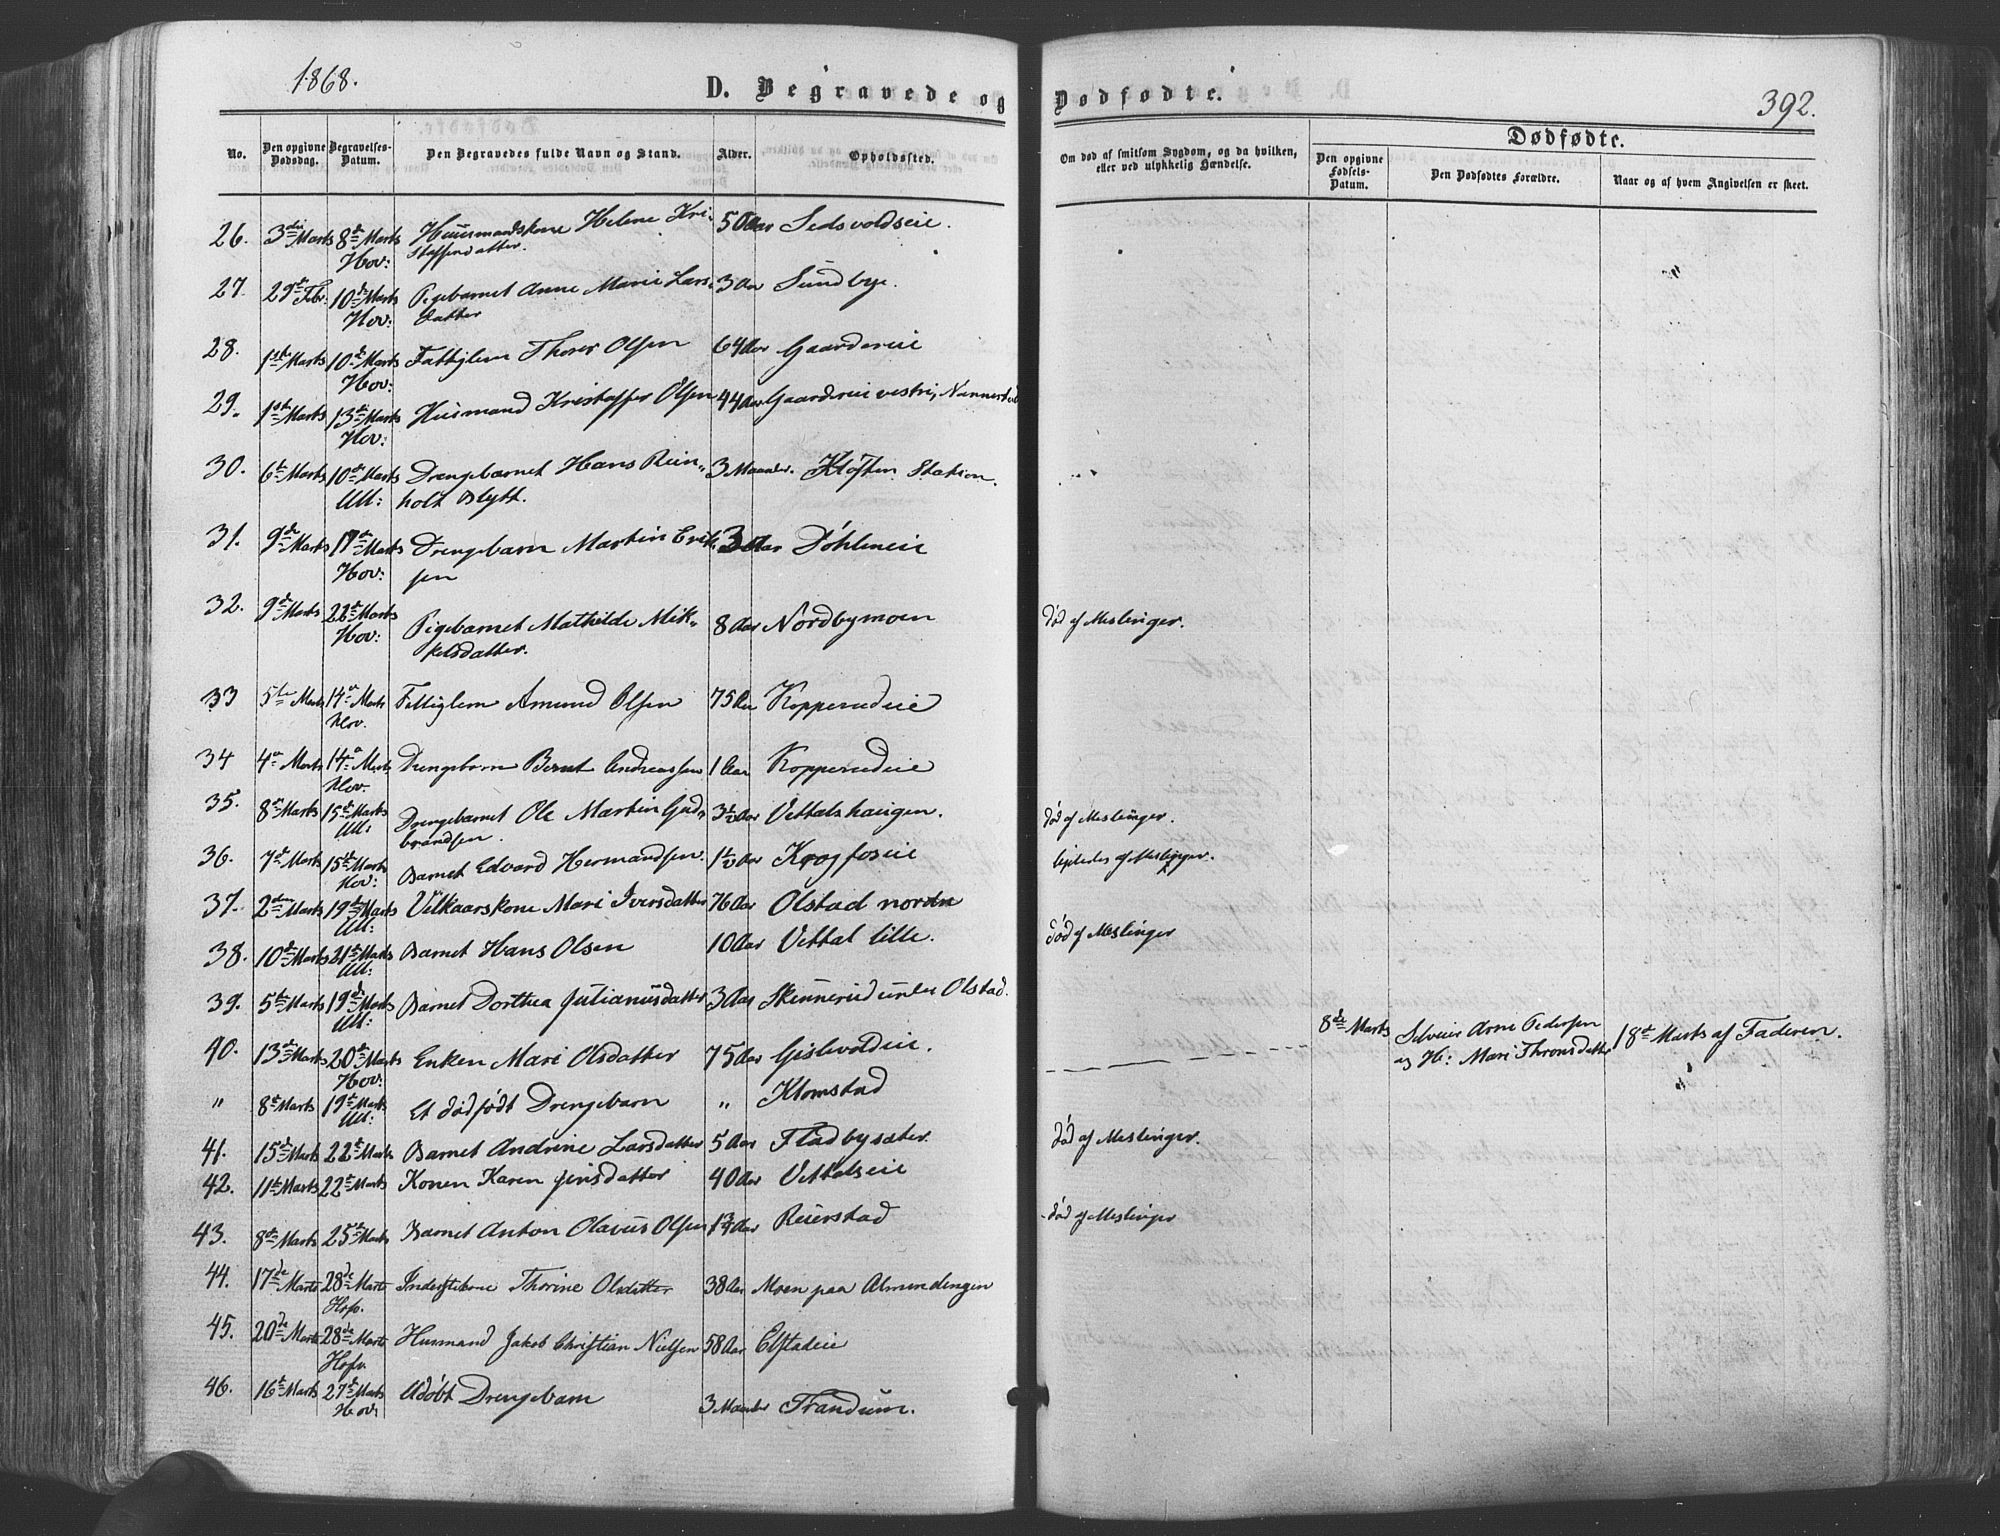 1868.
D. Begravede og Dødfødte.
392.
No.
Den opgivne Dødsdag.
Begravelses-Datum.
Den Begravedes fulde Navn og Stand.
Alder.
Opholdssted.
Om død af smitsom Sygdom, og da hvilken,
eller ved ulykkelig Hændelse.
Dødfødte.
Den opgivne Fødsels-Datum.
Den Dødfødtes Forældre.
Naar og af hvem Angivelsen er skeet.
26. 3die Marts 8de Marts Huusmandskone Helene Kri- 50 Aar Sedsvoldseie.
Hov: staffersdatter.
27. 29de Febr. 10de Marts Pigebarnet Anne Marie Lars- 3 Aar Sundbye.
Hov: datter
28. 1ste Marts 10de Marts Fattiglem Thorer Olsen 64 Aar Gaardereie
Hov:
29. 1ste Marts 13de Marts Husmand Kristoffer Olsen 44 Aar Gaardereie vestre, Nannestad
Hov:
30. 6te Marts 10de Marts Drengebarnet Hans Rein- 3 Maaneder. Kløften Station.
Ull: holt Blytt.
31. 9de Marts 17de Marts Drengebarn Martin Erik 3 Aar Døhleneie
Hov: sen
32. 9de Marts 22de Marts Pigebarnet Mathilde Mik- 8 Aar Nordbymoen død af Meslinger.
Hov: kelsdatter.
33 5te Marts 14de Marts Fattiglem Amund Olsen 75 Aar Kopperudeie
Hov.
34 4de Marts 14de Marts Drengebarn Bernt Andreassen 1 Aar Kopperudeie
Hov.
35. 8de Marts 15de Marts Drengebarnet Ole Martin Gud- 3½ Aar Vettalshaugen. død af Meslinger.
Ull: brandsen.
36. 7de Marts 15de Marts Barnet Edvard Hermandsen. 1½ Aar Krogfoseie ligeledes af Meslinger.
Hov:
37. 2den Marts 19de Marts Vilkaarskone Mari Iversdatter 76 Aar Olstad nordre
Ull:
38. 10de Marts 21de Marts Barnet Hans Olsen 10 Aar Vettal lille. død af Meslinger
Ull:
39. 5te Marts 19de Marts Barnet Dorthea Julianusdatter 3 Aar Skinnerud under Olstad.
Ull:
40. 13de Marts 20de Marts Enken Mari Olsdatter 75 Aar Gislevoldeie.
Hov:
" 8de Marts 19de Marts Et dødfødt Drengebarn " Klomstad 8de Marts Selveier Arne Pedersen 18de Marts af Faderen.
Ull: og H: Mari Thronsdatter
41. 15de Marts 22de Marts Barnet Andrine Larsdatter 5 Aar Fladbysæter. død af Meslinger.
42. 11te Marts 22de Marts Konen Karen Jensdatter 40 Aar Vettalseie
43. 8de Marts 25de Marts Barnet Anton Olavus Olsen 1¾ Aar Reierstad død af Meslinger
44. 17de Marts 28de Marts Inderstekone Thorine Olsdatter 38 Aar Moen paa Almendingen
Hofv.
45. 20de Marts 28de Marts Husmand Jakob Christian Nielsen 58 Aar Elstadeie
Hofv
46. 16de Marts 27de Marts Udøbt Drengebarn 3 Maaneder Trandum.
Hov: